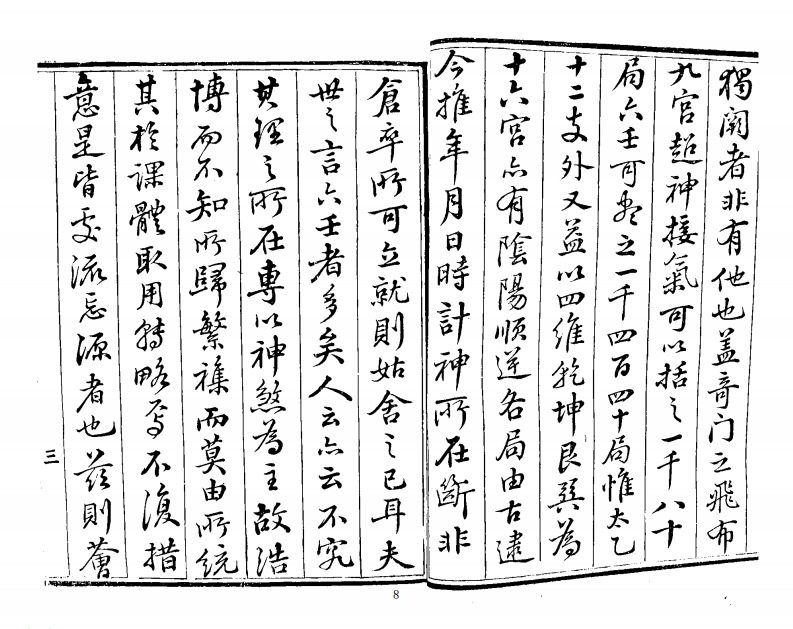 獨闕者非有他也盖奇门之飛布
九宫超神接氣可以括之一千八十
局六壬可盡之一千四百四十局惟太乙
十二支外又益以四維乾坤艮巽為
十六宫亦有陰陽順逆各局由古逮
今推年月日時計神所在斷非
倉卒所可立就則姑舍之已耳夫
世之言六壬者多矣人云亦云不究
其理之所在專以神煞為主故浩
博而不知所歸繁襍而莫由所統
其於課體取用轉略焉不復措
意是皆委流忘源者也茲則薈
三
8